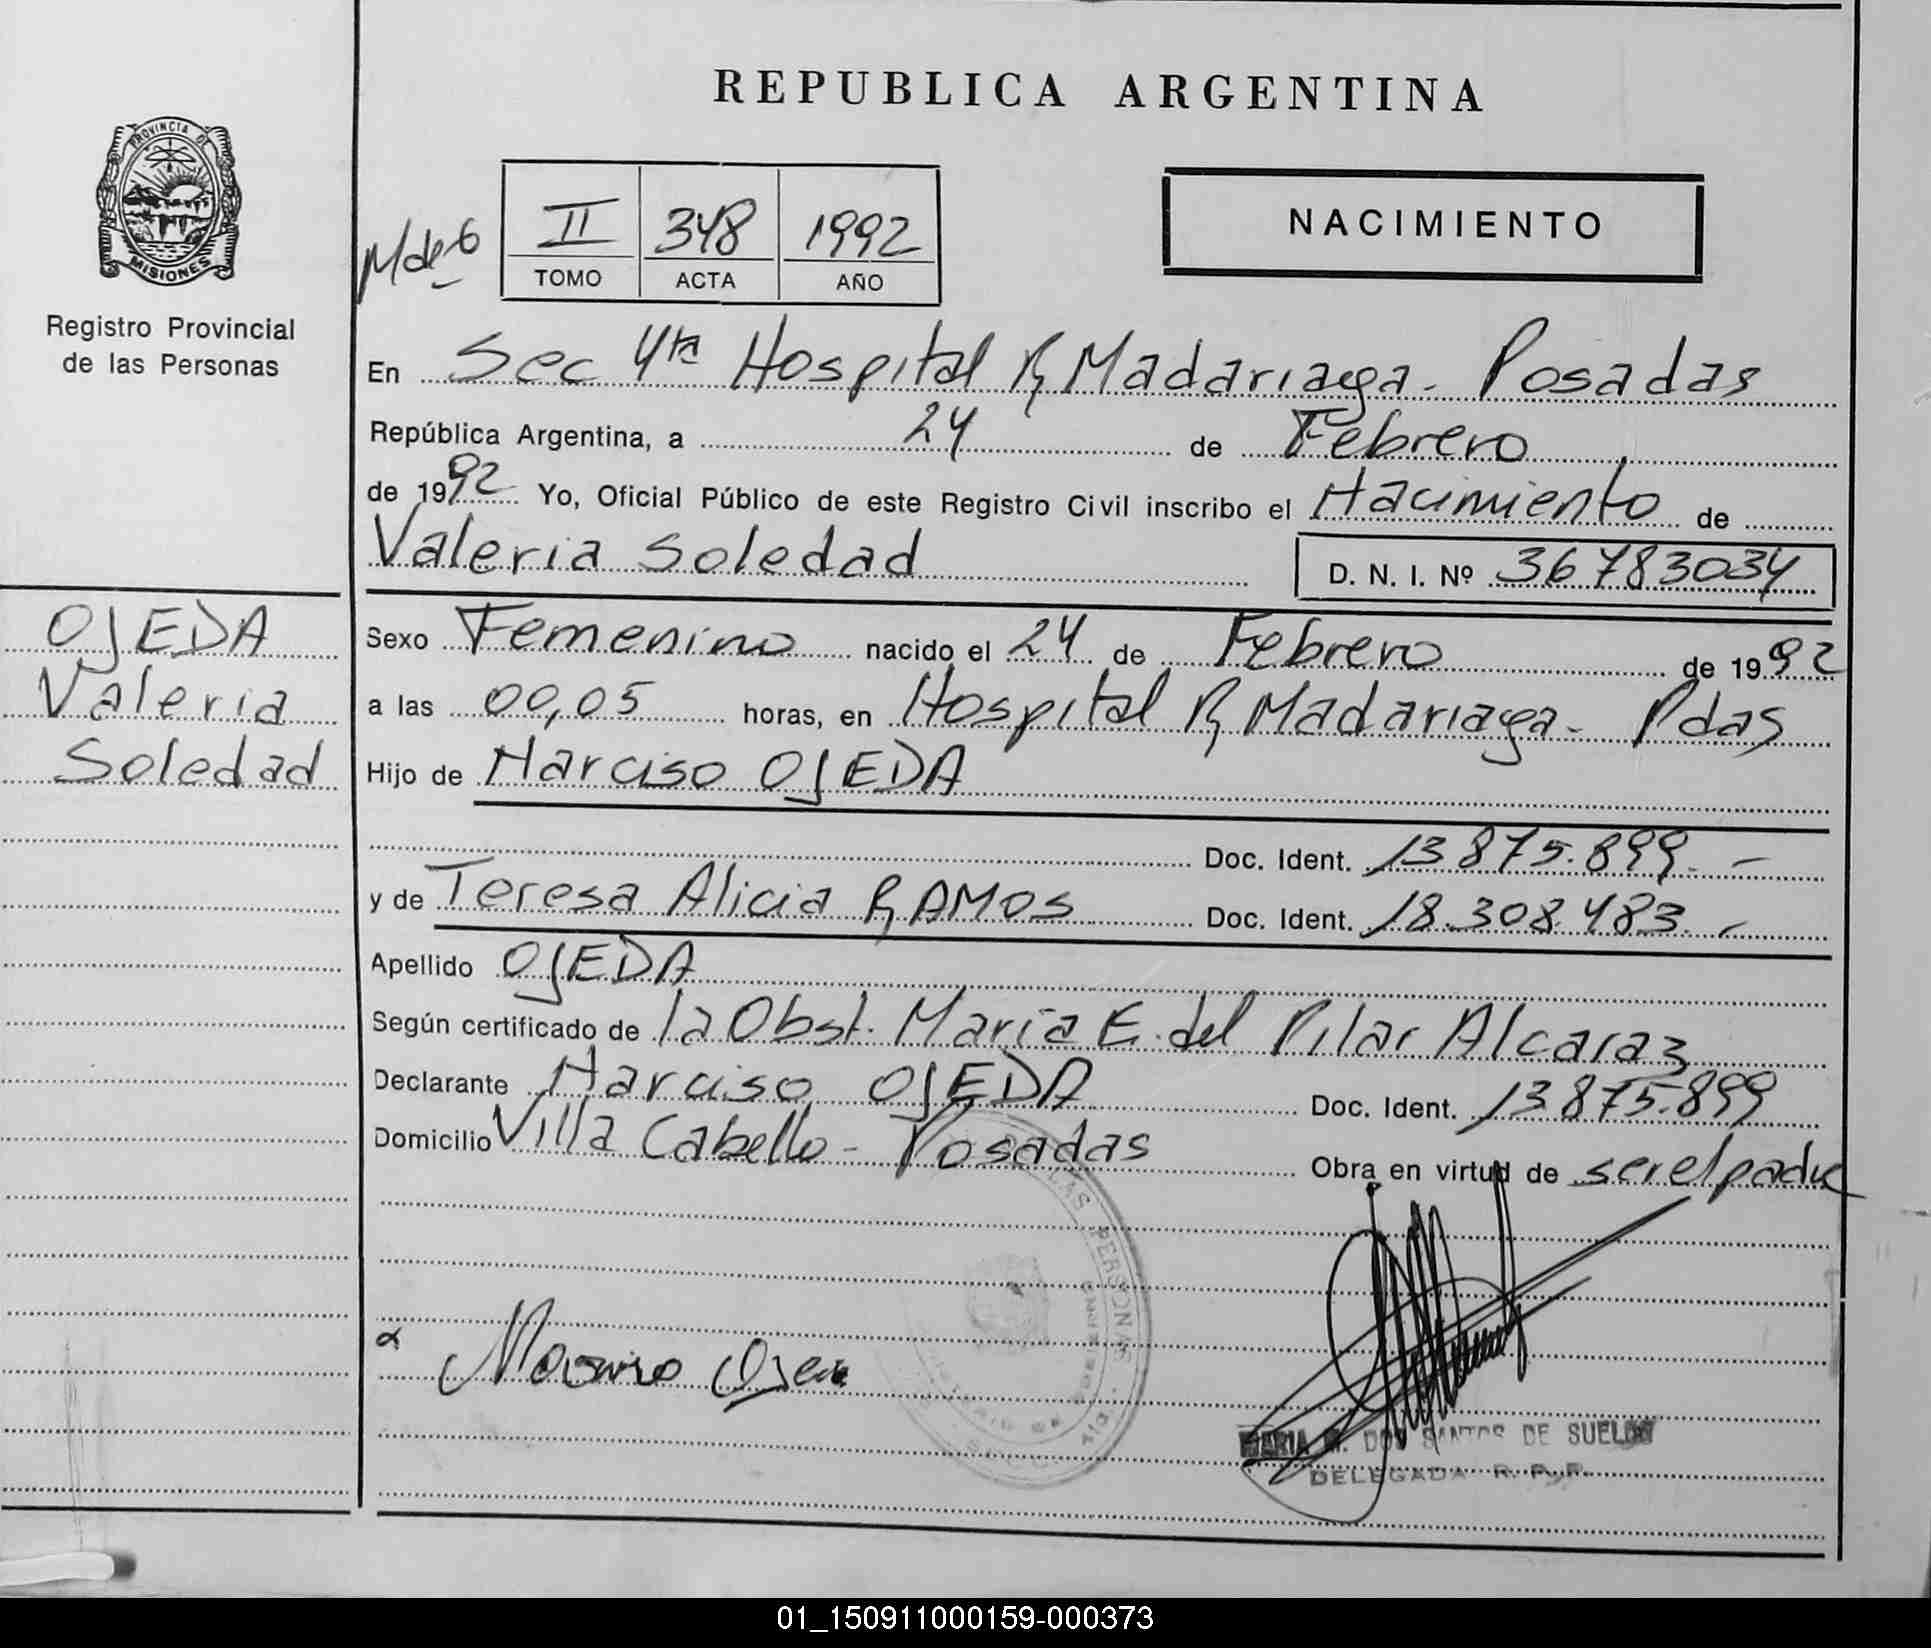 REPUBLICA ARGENTINA
PROVINCIA DE
MISIONES
Registro Provincial
de las Personas
II 348 1992
TOMO ACTA AÑO
NACIMIENTO
En Sec 4ta Hospital R Madariaga - Posadas
República Argentina, a 24 de Febrero
de 1992 Yo, Oficial Público de este Registro Civil inscribo el Nacimiento de
Valeria Soledad D. N. I. Nº 36783034
OJEDA
Valeria
Soledad
Sexo Femenino nacido el 24 de Febrero de 1992
a las 00,05 horas, en Hospital R Madariaga - Pdas
Hijo de Narciso OJEDA
Doc. Ident. 13.875.899.-
y de Teresa Alicia RAMOS Doc. Ident. 18.308.483.-
Apellido OJEDA
Según certificado de la Obst. Maria E. del Pilar Alcaraz
Declarante Narciso OJEDA Doc. Ident. 13.875.899
Domicilio Villa Cabello - Posadas Obra en virtud de ser el padre
LAS PERSONAS
MARIA M. DOS SANTOS DE SUELDO
DELEGADA R. P. P.
01_150911000159-000373